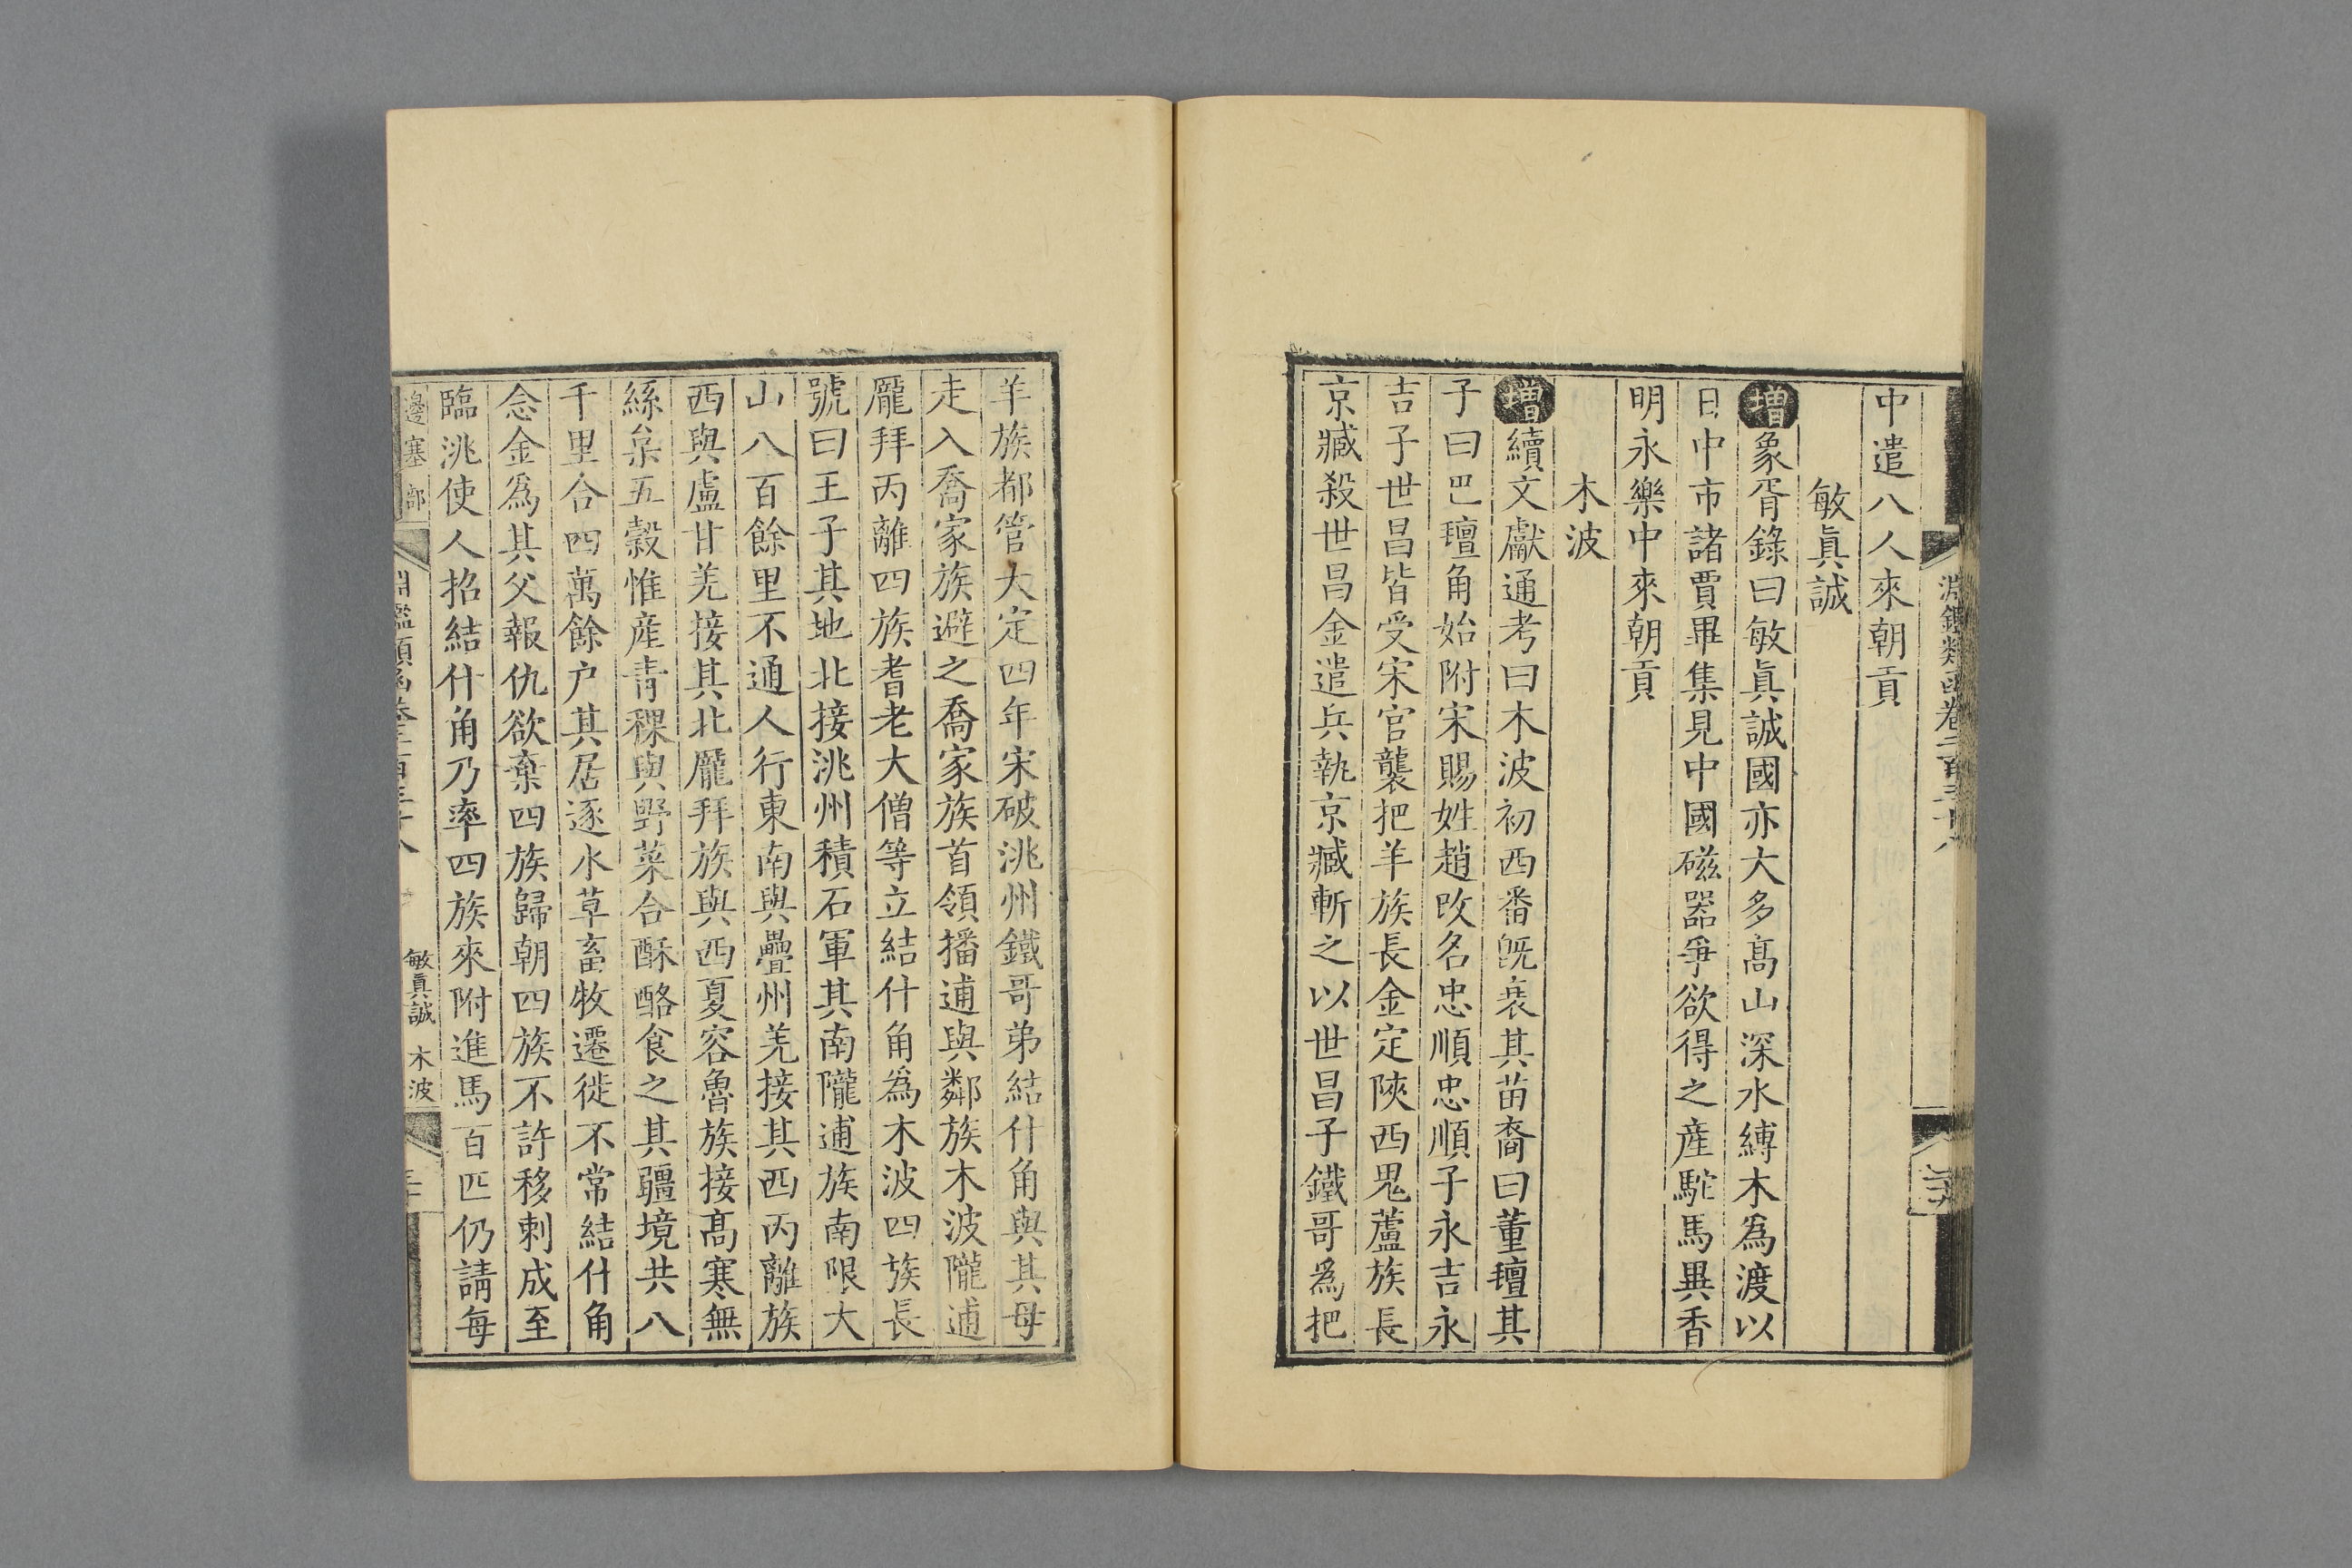 淵鑑類函卷二百三十八
中遣八人來朝貢
敏眞誠
增象胥錄曰敏眞誠國亦大多高山深水縛木爲渡以
日中市諸賈畢集見中國磁器爭欲得之産駝馬異香
明永樂中來朝貢
木波
增續文獻通考曰木波初西番旣衰其苗裔曰董㼾其
子曰巴㼾角始附宋賜姓趙改名忠順忠順子永吉永
吉子世昌皆受宋官襲把羊族長金定陜西鬼蘆族長
京臧殺世昌金遣兵執京臧斬之以世昌子鐵哥爲把
羊族都管大定四年宋破洮州鐵哥弟結什角與其母
走入喬家族避之喬家族首領播逋與鄰族木波隴逋
龎拜丙離四族耆老大僧等立結什角爲木波四族長
號曰王子其地北接洮州積石軍其南隴逋族南限大
山八百餘里不通人行東南與疊州羌接其西丙離族
西與盧甘羌接其北龎拜族與西夏容魯族接高寒無
絲枲五穀惟産青稞與野菜合酥酪食之其疆境共八
千里合四萬餘户其居逐水草畜牧遷徙不常結什角
念金爲其父報仇欲棄四族歸朝四族不許移剌成至
臨洮使人招結什角乃率四族來附進馬百匹仍請每
邊塞部
淵鑑類函卷二百三十八
敏眞誠 木波